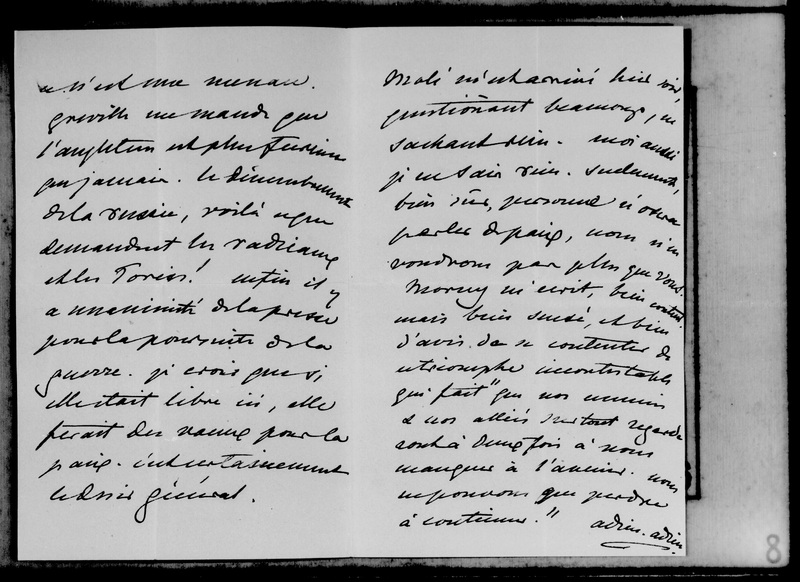 ce n'est une menace.
Greville me mande que
l'angleterre est plus furieuse
que jamais. le démembrement
de la russie, voilà ce que
demandent les radicaux
et les Tories! enfin il y
a unanimité de la presse
pour la poursuite de la
guerre. je crois que si
elle était libre ici, elle
ferait des vœux pour la
paix. c'est certainement
le désir général.
Molé m'est arrivé hier soir
questionnant beaucoup, ne
sachant rien. moi aussi
je ne sais rien. seulement,
bien sûr, personne n'osera
parler de paix, nous n'en
voudrons pas plus que vous.
Morny m'écrit, bien content
mais bien sensé, et bien
d'avis de se contenter de
ce triomphe incontestable
qui fait "que nos ennemis
& nos alliés surtout regarde
ront à deux fois à nous
manquer à l'avenir. nous
ne pouvons que perdre
à continuer." adieu. adieu.
8